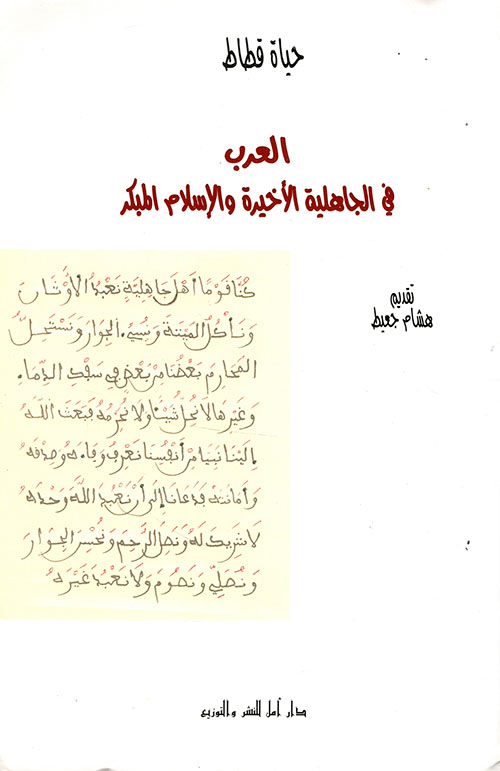 حياة قطاط
العرب
في الجاهلية الأخيرة والإسلام المبكر
تقديم
هشام جعيط
كُنَّا قَوْمًا أَهْلَ جَاهِلِيَّةٍ نَعْبُدُ الْأَوْثَانَ
وَنَأْكُلُ الْمَيْتَةَ وَنُسِيءُ الْجِوَارَ وَنَسْتَحِلُّ
الْمَحَارِمَ بَعْضُنَا مِنْ بَعْضٍ فِي سَفْكِ الدِّمَاءِ
وَغَيْرِهَا لَا نُحِلُّ شَيْئًا وَلَا نُحَرِّمُهُ فَبَعَثَ اللَّهُ
إِلَيْنَا نَبِيًّا مِنْ أَنْفُسِنَا نَعْرِفُ وَفَاءَهُ وَصِدْقَهُ
وَأَمَانَتَهُ فَدَعَانَا إِلَى أَنْ نَعْبُدَ اللَّهَ وَحْدَهُ
لَا شَرِيكَ لَهُ وَنَصِلَ الرَّحِمَ وَنُحْسِنَ الْجِوَارَ
وَنُصَلِّيَ وَنَصُومَ وَلَا نَعْبُدَ غَيْرَهُ
دار أمل للنشر والتوزيع